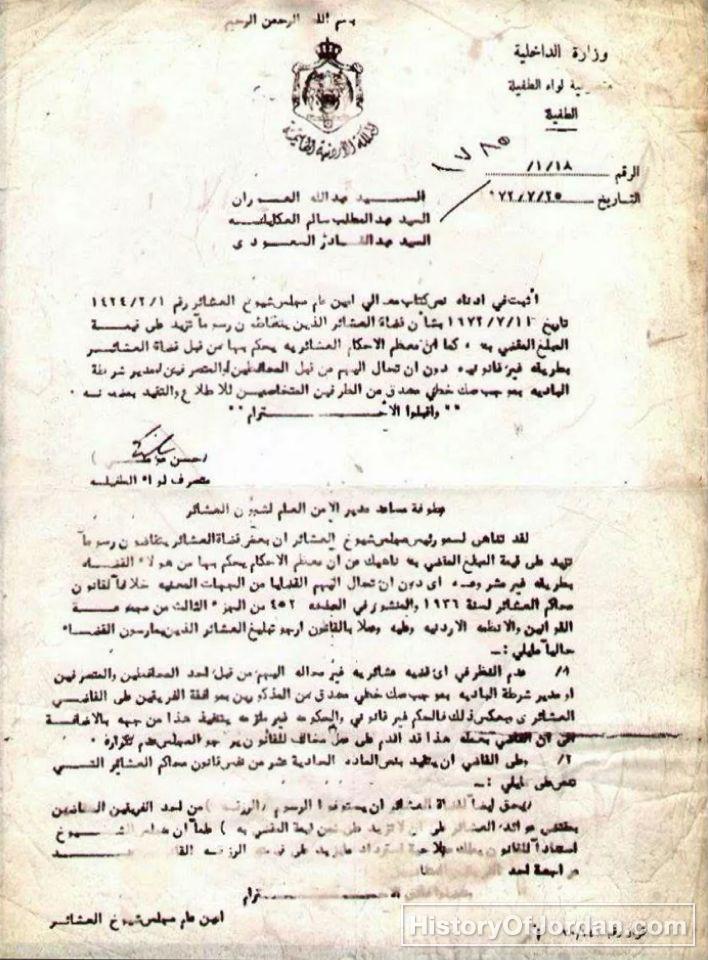 بسم الله الرحمن الرحيم
وزارة الداخلية
متصرفية لواء الطفيلة
الطفيلة
المملكة الأردنية الهاشمية
الرقم ١/١٨/ ١٧٨٥
التاريخ ٩٧٢/٧/٢٥
السيد عبدالله العوران
السيد عبدالمطلب سالم العكايله
السيد عبدالقادر السعودي
أثبت في ادناه نص كتاب معالي امين عام مجلس شيوخ العشائر رقم
تاريخ بشأن قضاة العشائر الذين يتقاضون رسوما تزيد على قيمة
المبلغ المقضي به ، كما ان معظم الاحكام العشائريه يحكم بها من قبل قضاة العشائر
بطريقه غير قانونيه دون ان تحال اليهم من قبل المحافظين والمتصرفين او مدير شرطة
الباديه بموجب صك خطي مصدق من الطرفين المتخاصمين للاطلاع والتقيد بمضمونه .
"" واقبلوا الاحترام ""
( حسن )
متصرف لواء الطفيله
عطوفة مساعد مدير الامن العام لشؤون العشائر
لقد تناهى لسمو رئيس مجلس شيوخ العشائر ان بعض قضاة العشائر يتقاضون رسوما
تزيد على قيمة المبلغ المقضي به ناهيك عن ان معظم الاحكام يحكم بها من هولاء القضاه
بطريقه غير مشروعه اى دون ان تحال اليهم القضايا من الجهات المحليه خلافا لقانون
محاكم العشائر لسنة ١٩٣٦ والمنشور في الصفحه ٤٥٢ من الجزء الثالث من مجموعة
القوانين والانظمه الاردنيه وعليه وعملا بالقانون ارجو تبليغ العشائر الذين يمارسون القضاء
حاليا مايلي :ـ
١/ عدم النظر في اى قضيه عشائريه غير محاله اليهم من قبل احد المحافظين والمتصرفين
او مدير شرطة الباديه بموجب صك خطي مصدق من المذكورين بموافقة الفريقين على القاضي
العشائرى وبعكس ذلك فالحكم غير قانوني والحكومه غير ملزمه بتنفيذ هذا من جهه بالاضافة
الى ان القاضي بعمله هذا قد اقدم على عمل مخالف للقانون يرجو المجلس عدم تكراره .
٢/ وعلى القاضي ان يتقيد بنص الماده الحادية عشر من نفس قانون محاكم العشائر التي
تنص على مايلي :ـ
( يحق ايضا لقضاة العشائر ان يستوفوا الرسوم ( الرزقه ) من احد الفريقين المتقاضيين
بمقتضى عوائد العشائر على ان لا تزيد على ثمن قيمة المقضي به ) علما ان مجلس الشيوخ
استنادا للقانون يملك صلاحية استرداد مايزيد على قيمة الرزقه
مراجعة احد
امين عام مجلس شيوخ العشائر
HistoryOfJordan.com